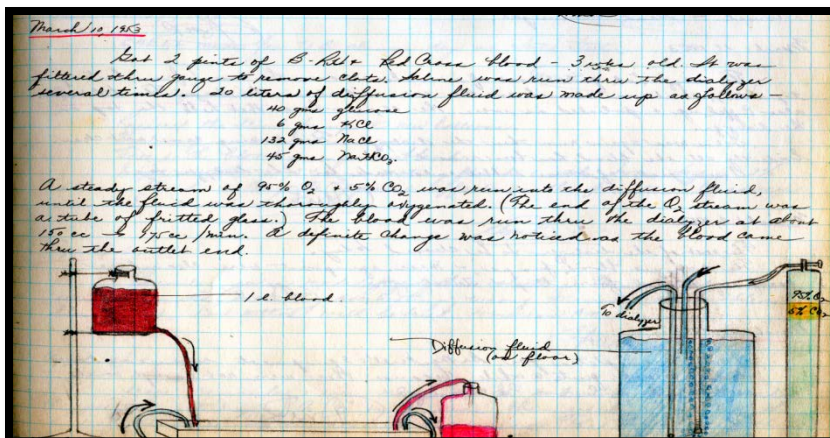 March 10, 1953
Got 2 pints of B-Rh+ Red Cross blood - 3 wks old. It was
filtered thru gauze to remove clots. Saline was run thru the dialyzer
several times. 20 liters of diffusion fluid was made up as follows -
40 gms glucose
6 gms KCl
132 gms NaCl
45 gms NaHCO3.
A steady stream of 95% O2 + 5% CO2 was run into the diffusion fluid,
until the fluid was thoroughly oxygenated. (The end of the O2 stream was
a tube of fritted glass.) The blood was run thru the dialyzer at about
150 cc 175cc/min. A definite change was noticed as the blood came
thru the outlet end.
1 l. blood
To dialyzer
95% O2
5% CO2
Diffusion fluid
(on floor)